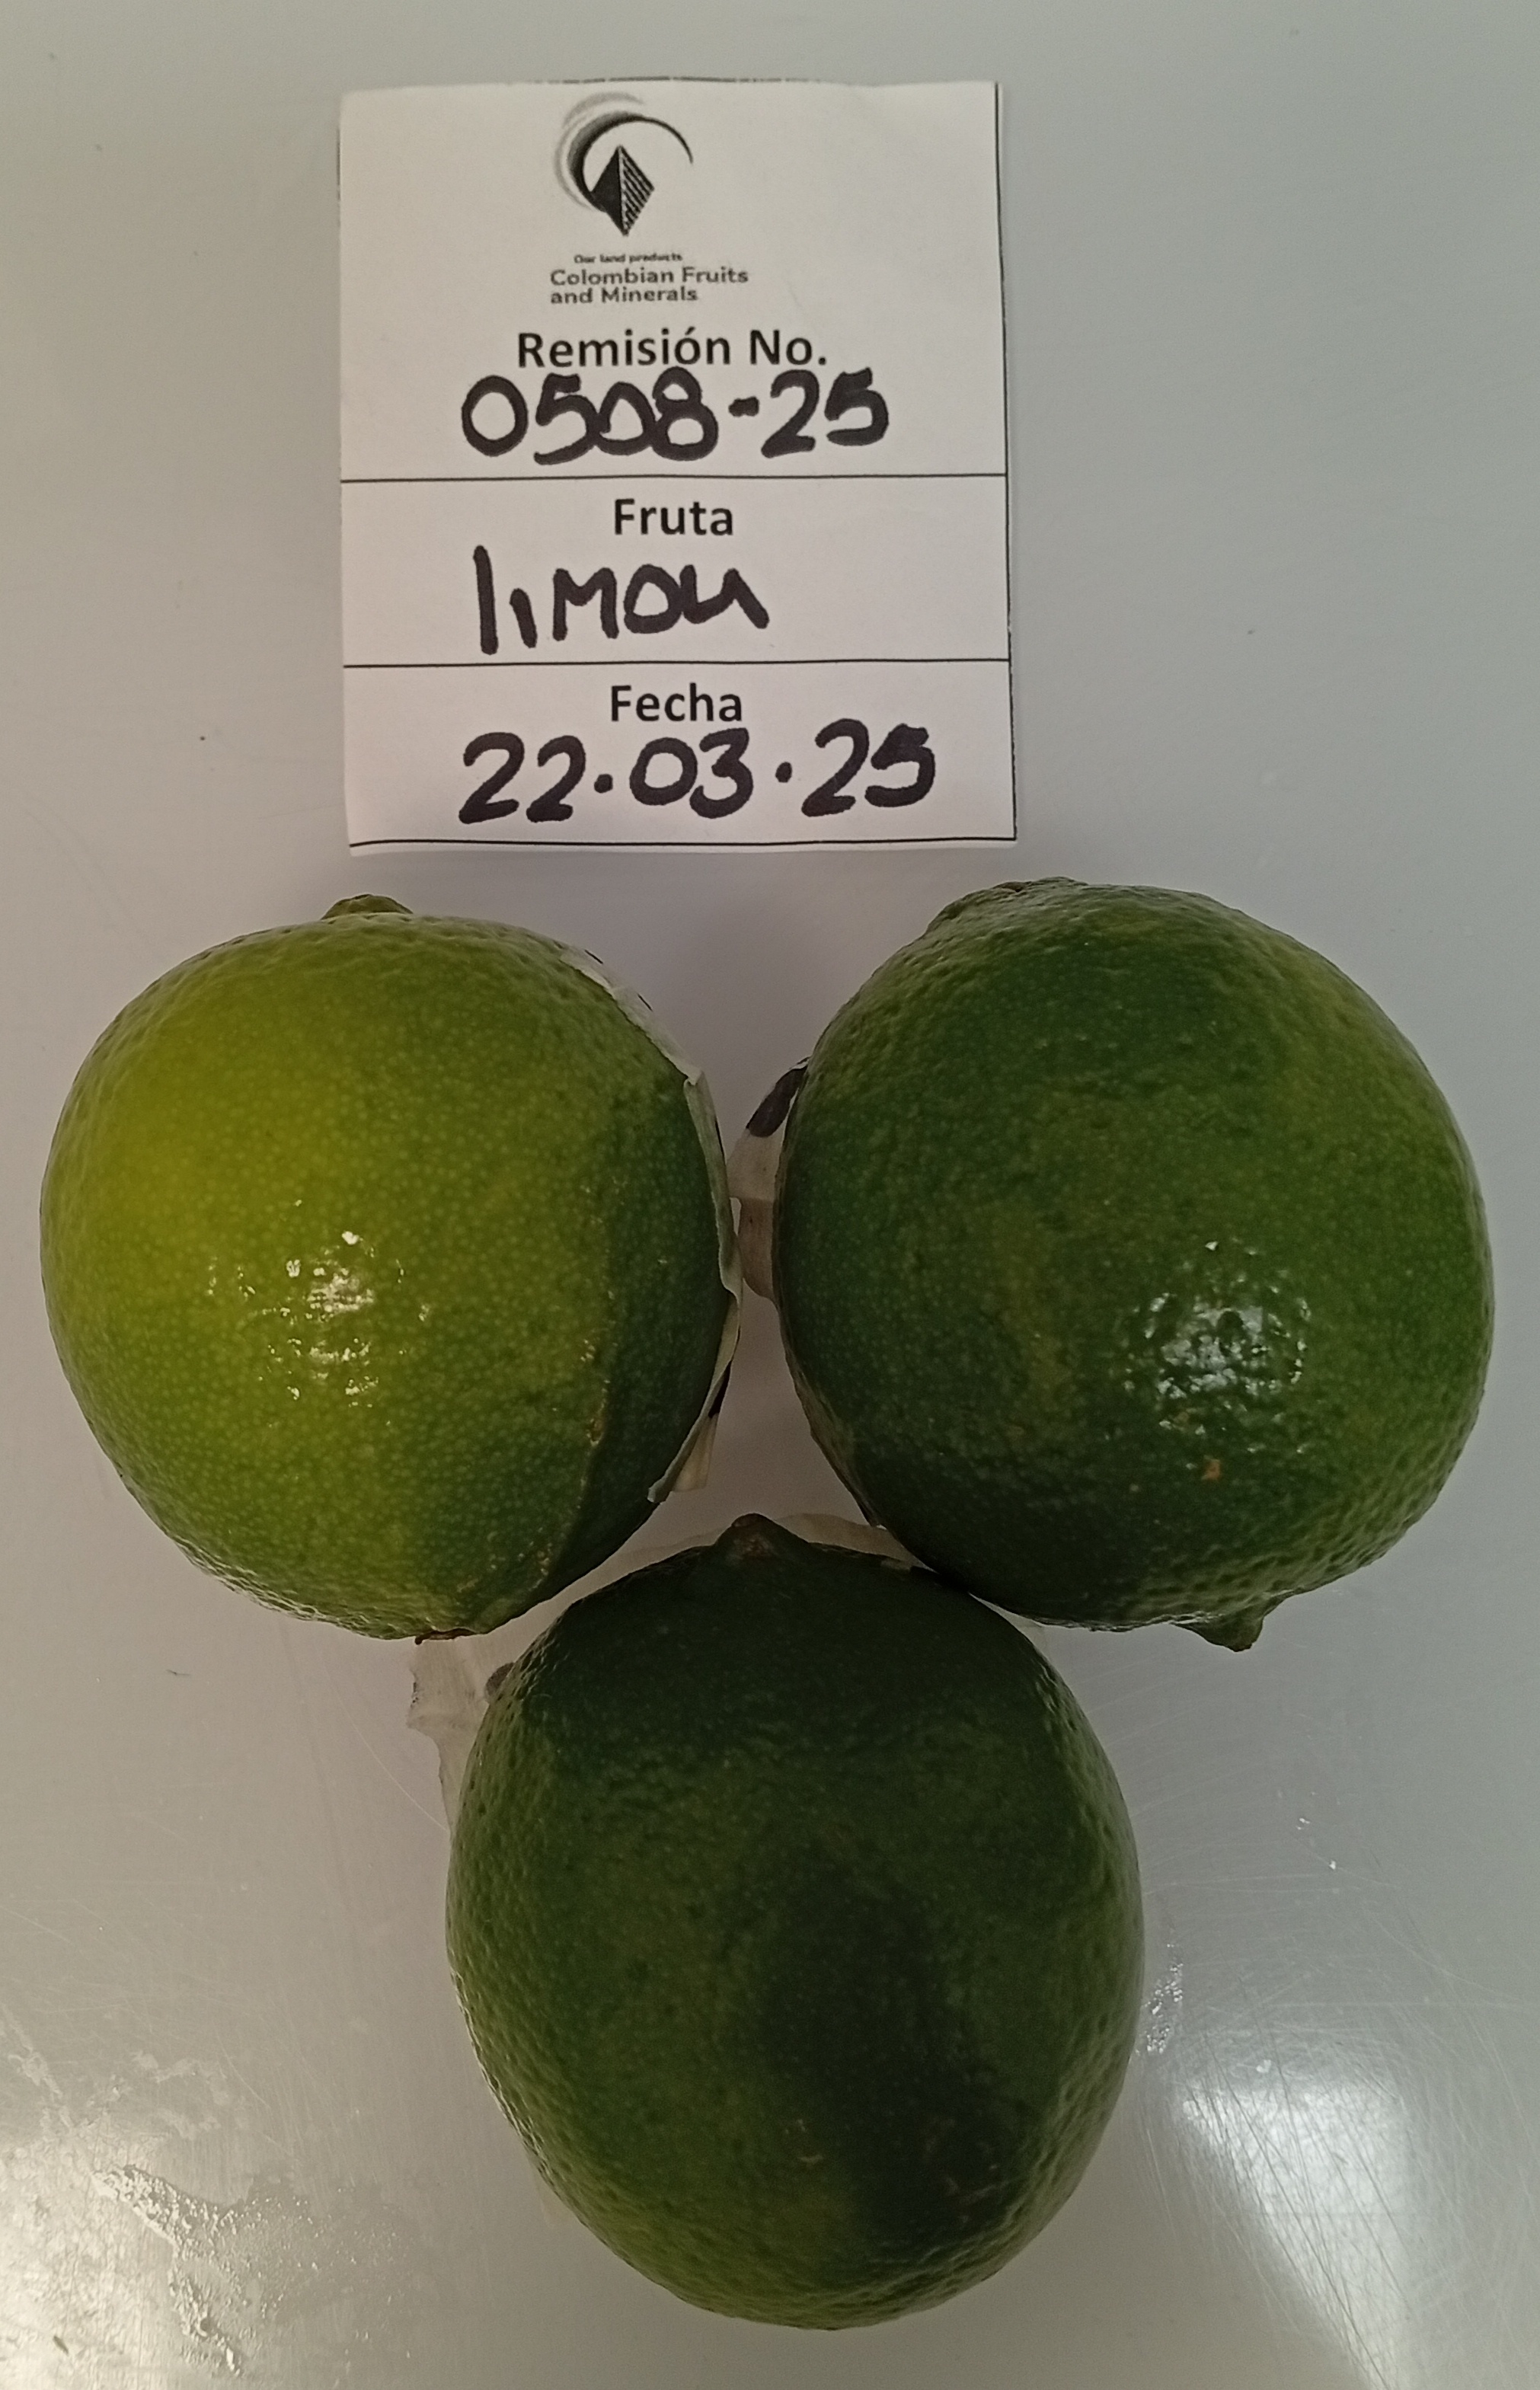 Our land products
Colombian Fruits
and Minerals
Remisión No.
0508-25
Fruta
limon
Fecha
22.03.25